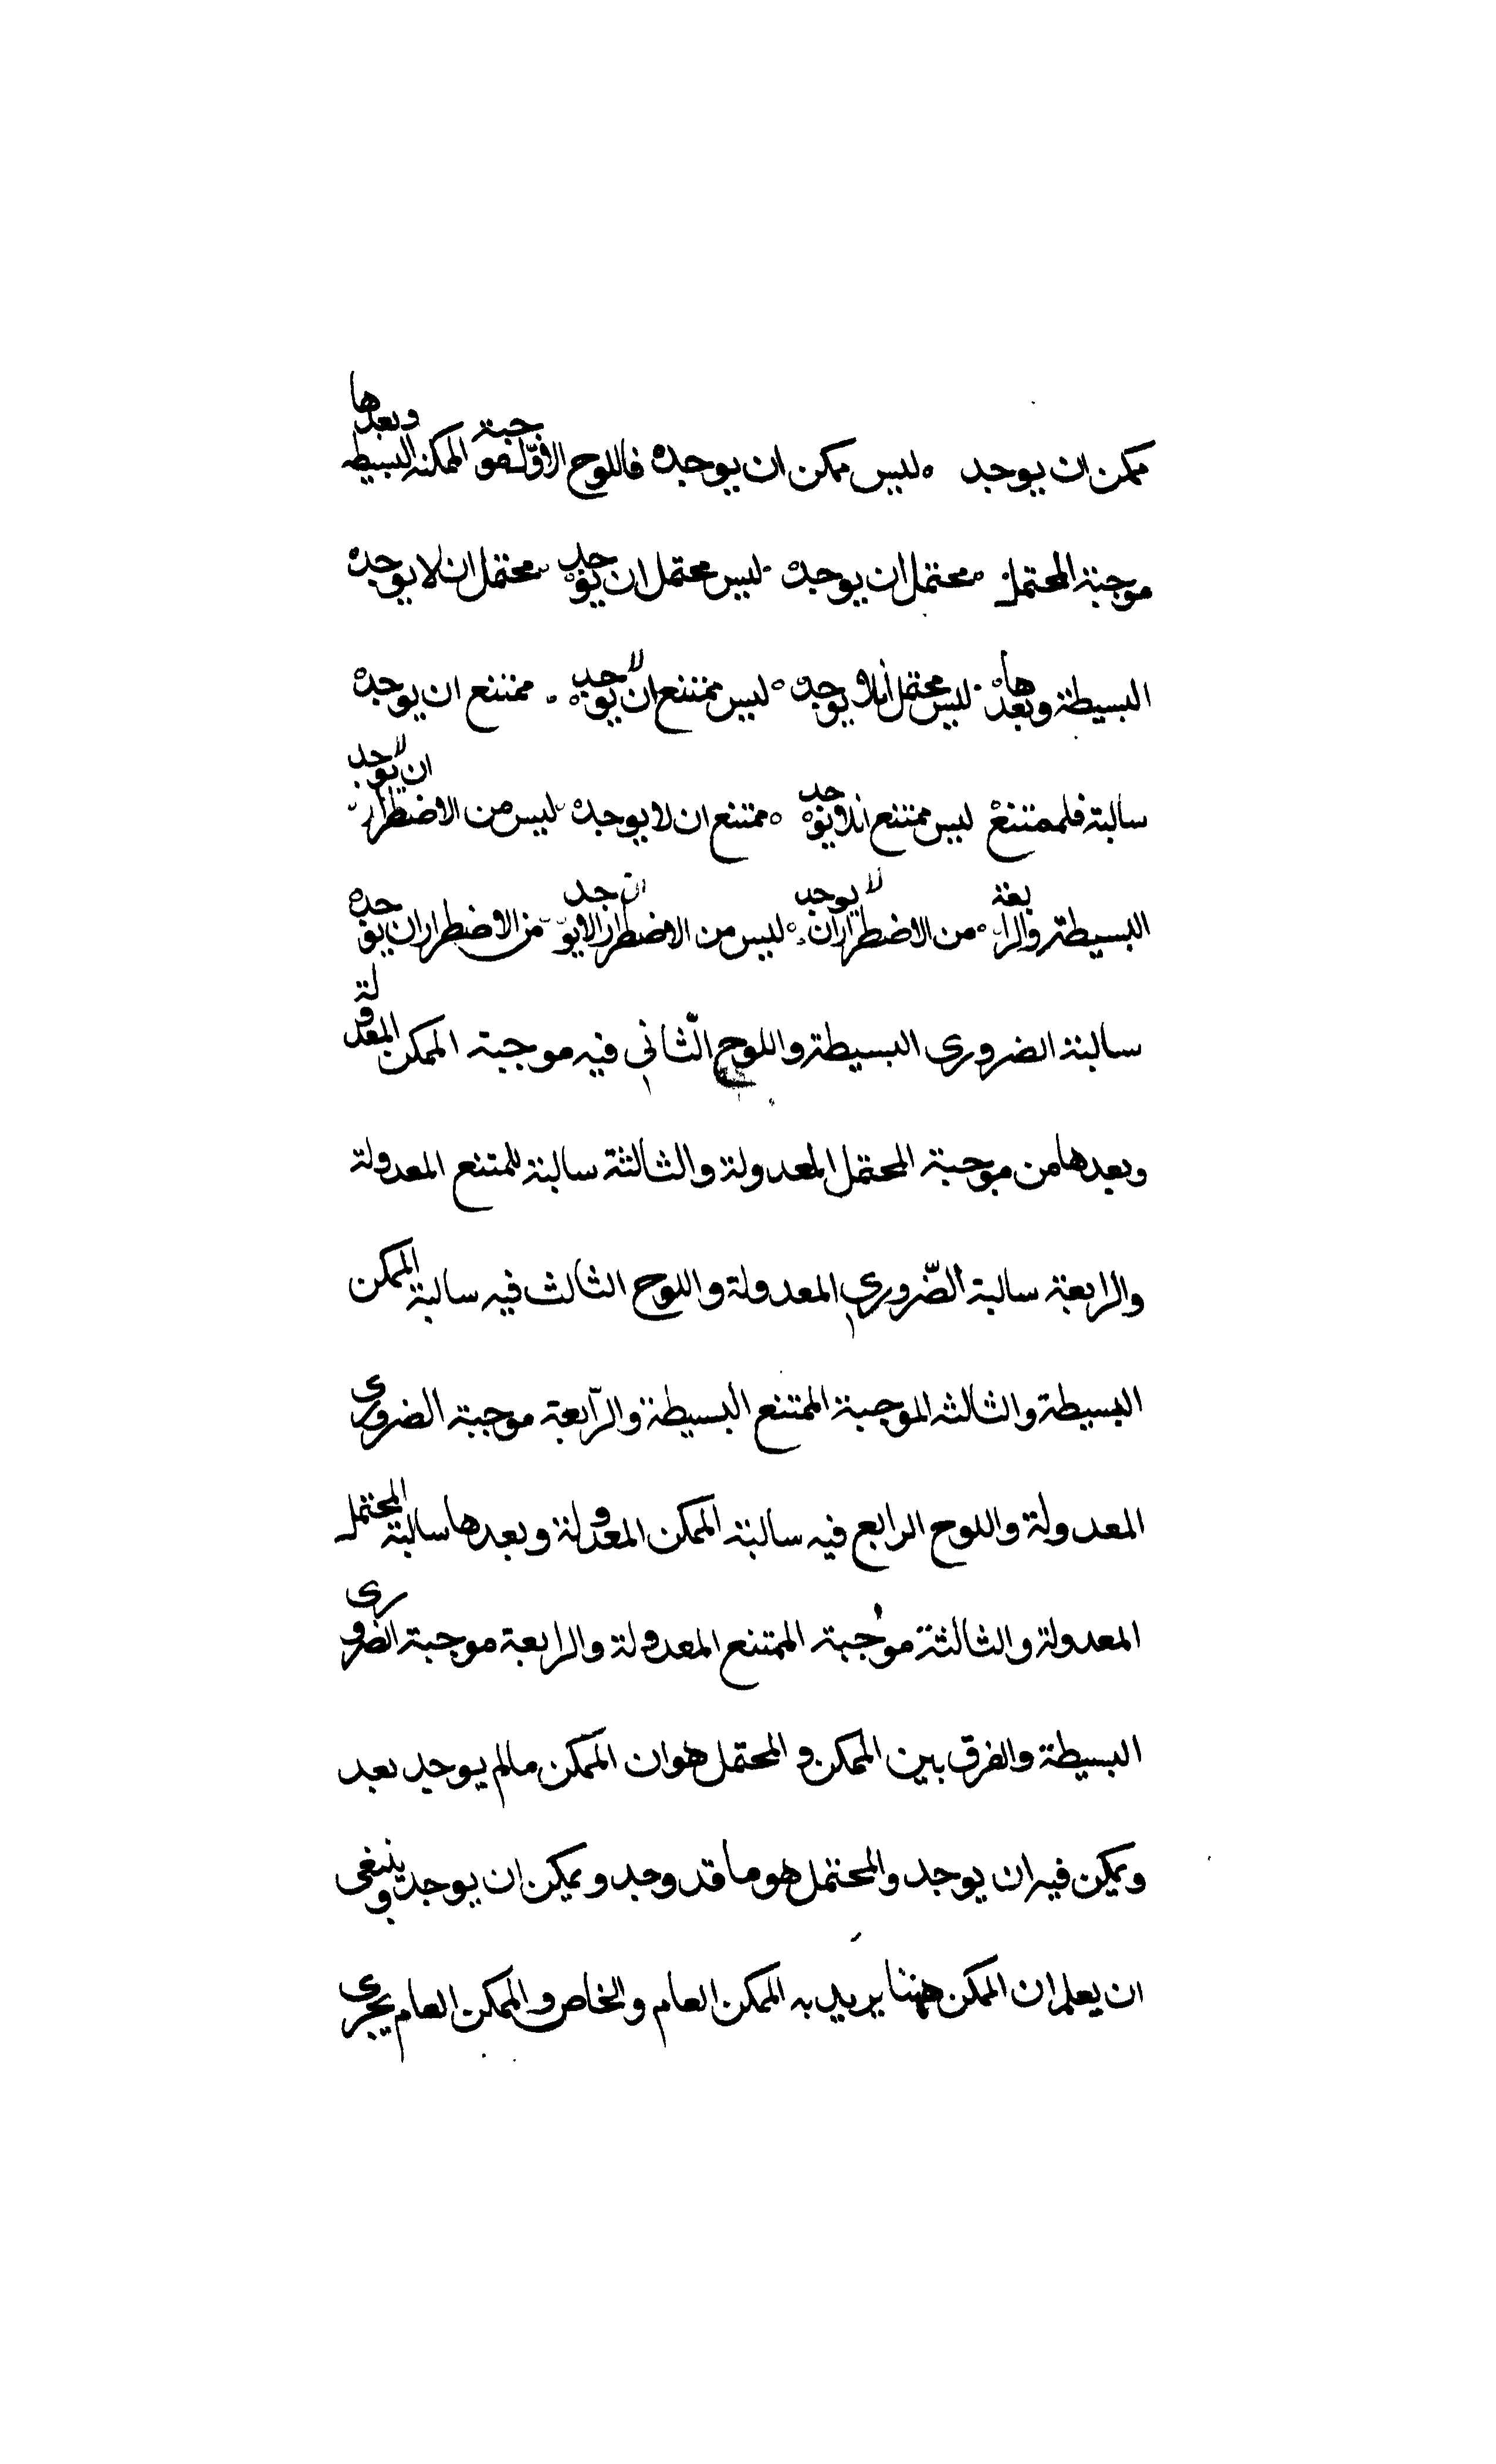 ممكن ان يوجد ه ليس ممكن ان يوجد ه فاللوح الاوّل موجبة الممكنه البسيطه وبعدها
موجبة المحتمل ه محتمل ان يوجد ه ليس محتمل ان يوجد ه محتمل ان لا يوجد ه
البسيطة وبعدها ه ليس محتمل ان لا يوجد ه ليس ممتنع ان لا يوجد ه ممتنع ان يوجد ه
سالبة فلممتنع ليس ممتنع ان لا يوجد ه ممتنع ان لا يوجد ه ليس من الاضطرار ان لا يوجد
البسيطة والرابعة ه من الاضطرار ان لا يوجد ه ليس من الاضطرار ان لا يوجد من الاضطرار ان يوجد ه
سالبة الضرورى البسيطة واللوح الثّانى فيه موجبة الممكن المعدولة
وبعدها من موجبة المحتمل المعدولة والثالثة سالبة للمتنع المعدولة
والرابعة سالبة الضّرورى المعدولة واللوح الثالث فيه سالبة الممكن
البسيطة والثالثه الموجبة الممتنع البسيطة والرّابعة موجبة الضرورى
المعدولة واللوح الرابع فيه سالبة الممكن المعدولة وبعدها سالبة المحتمل
المعدولة والثالثة موجبة الممتنع المعدولة والرابعة موجبة الضرورى
البسيطة والفرق بين الممكن والمحتمل هو ان الممكن ما لم يوجد بعد
ويمكن فيه ان يوجد والمحتمل هو ما قد وجد ويمكن ان يوجد وينبغى
ان يعلم ان الممكن ههنا يريد به الممكن العام والخاص والممكن العام يجرى